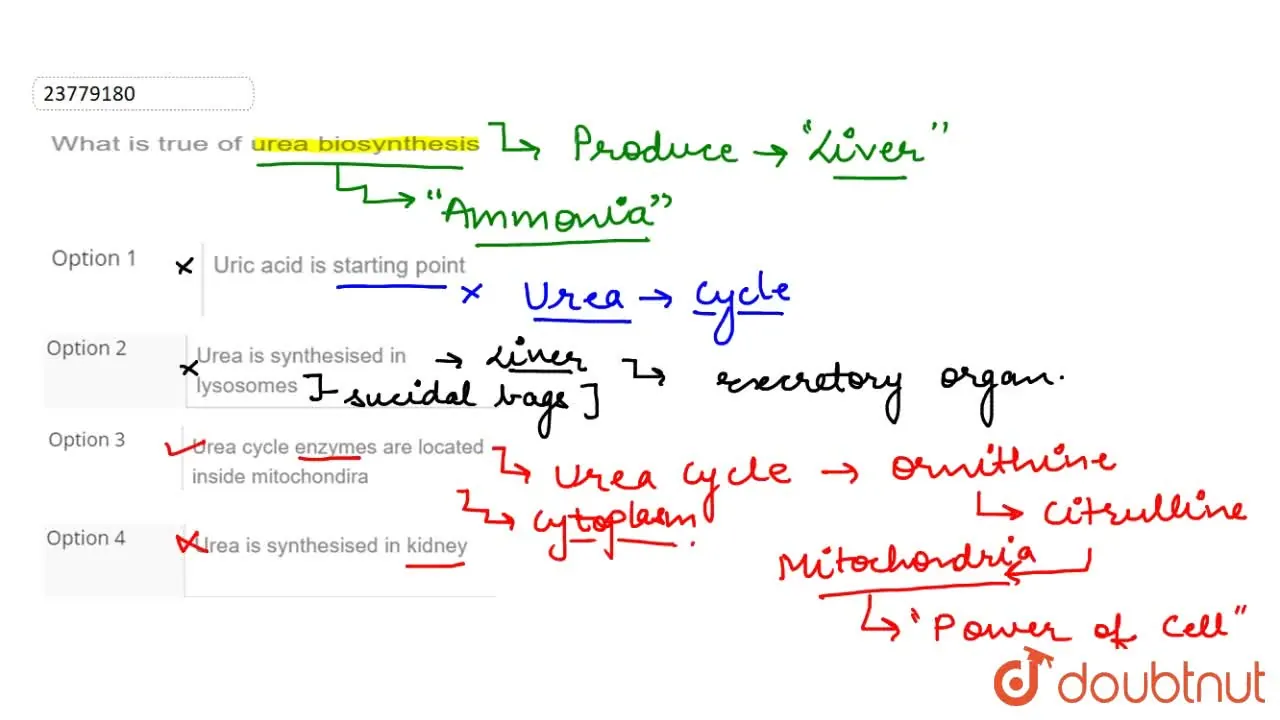 23779180
What is true of urea biosynthesis → Produce → "Liver"
→ "Ammonia"
Option 1 × Uric acid is starting point × Urea → Cycle
Option 2 × Urea is synthesised in → Liver
lysosomes ]- sucidal bags ] → execretory organ.
Option 3 ✓ Urea cycle enzymes are located
inside mitochondira → Urea Cycle → Ornithine
→ Citrulline
→ Cytoplasm.
Option 4 × Urea is synthesised in kidney
Mitochondria
→ "Power of Cell"
doubtnut